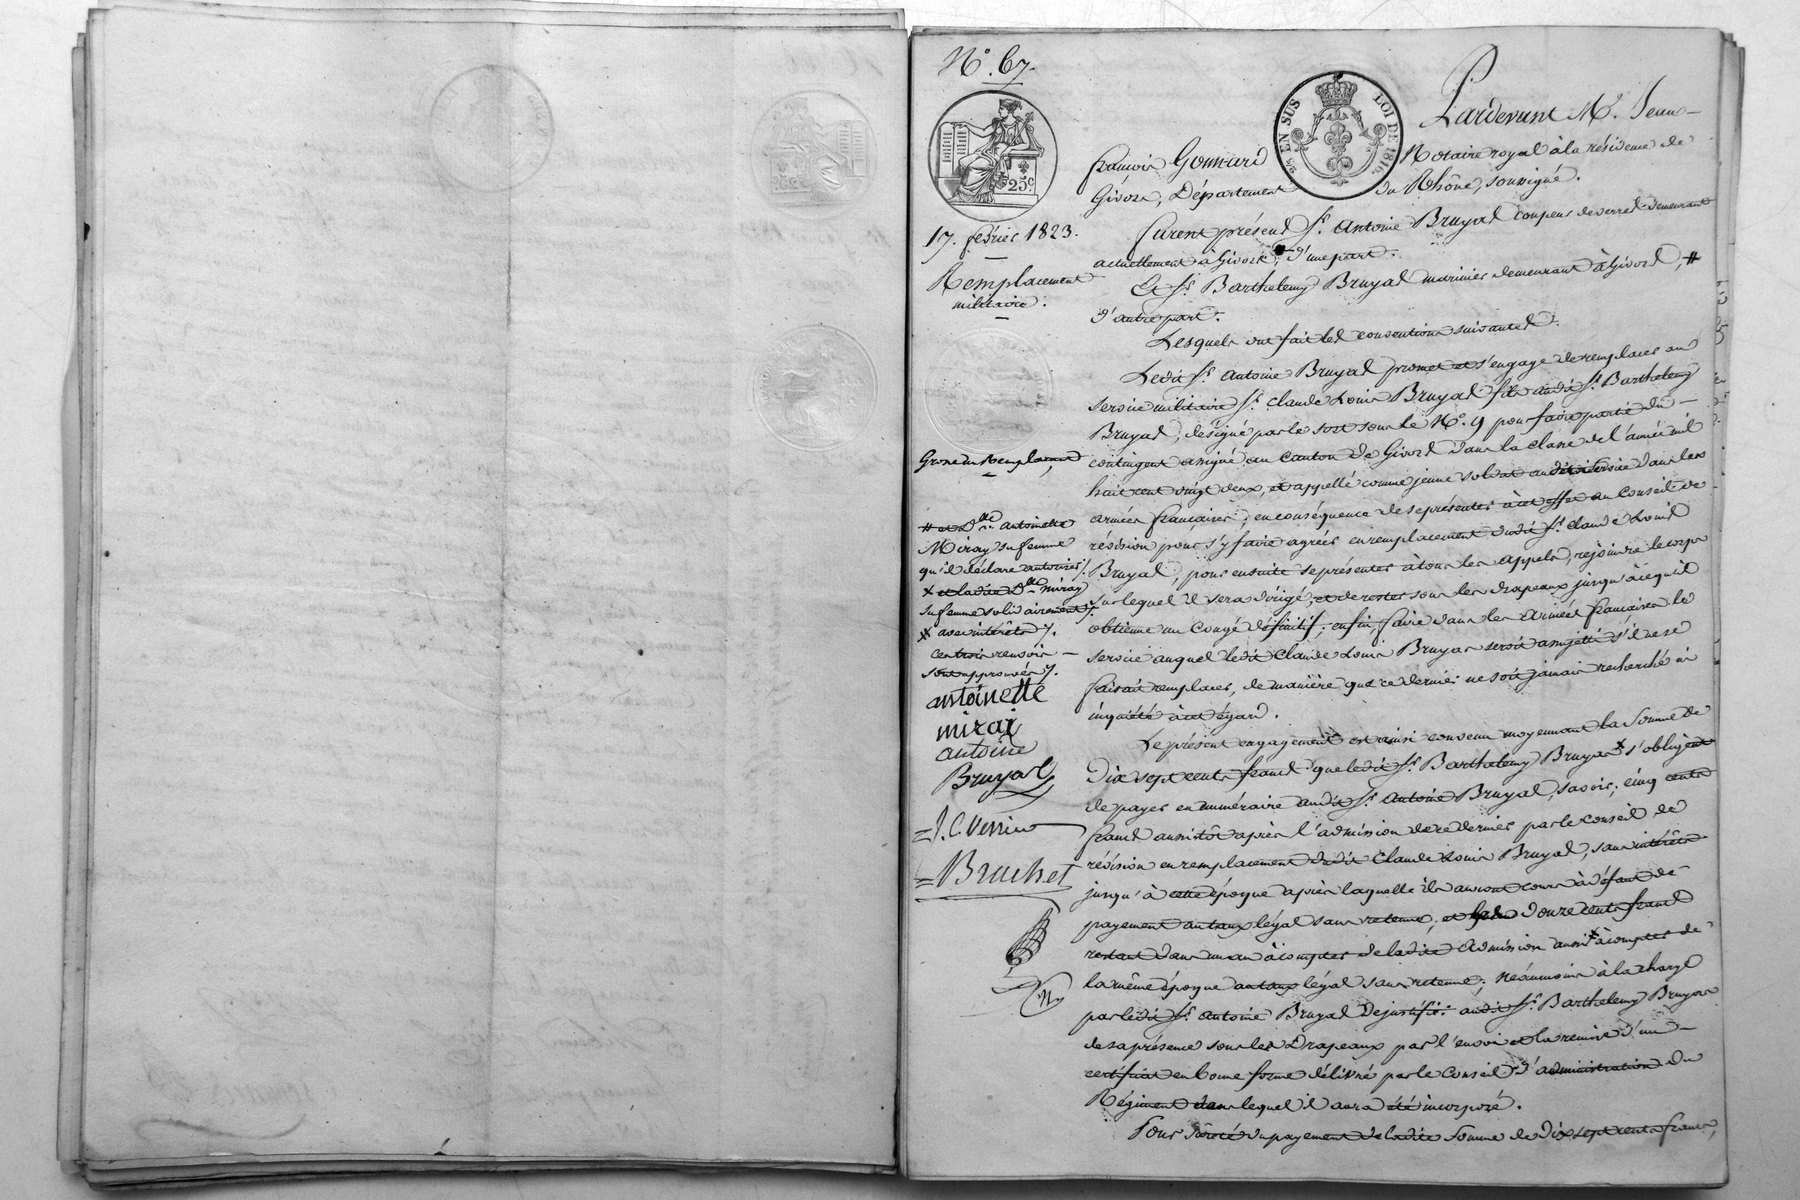 N°. 67.
25 c.
EN SUS
LOI DE 1816
17. février 1823.
Remplacement
militaire.
Grosse du Remplacant
# et D.lle antoinette
Miray sa femme
qu'il déclare autoriser /.
x et ladite D.lle miray
sa femme solidairement /.
x avec intérêts /.
ces trois renvois
sont approuvés /.
antoinette
mirai
antoine
Bruyas
J. C. Verrier
Brachet
Pardevant M.e Jean-
françois Gonnard Notaire royal à la résidence de
Givors, Département du Rhône, soussigné.
furent présens S.r Antoine Bruyas coupeur de verres demeurant
actuellement à Givors, d'une part.
Et S.r Barthelemy Bruyas marinier demeurant à Givors, #
d'autre part.
Lesquels ont fait les conventions suivantes.
Ledit S.r Antoine Bruyas promet et s'engage de remplacer au
service militaire S.r Claude Louis Bruyas fils dudit S.r Barthelemy
Bruyas, désigné par le sort sous le N.o 9 pour faire partie du
contingent assigné au Canton de Givors dans la classe de l'année mil
huit cent vingt deux, et appellé comme jeune soldat au service dans les
armées françaises; en conséquence de se présenter à cet effet au Conseil de
révision pour s'y faire agréer en remplacement dudit S.r Claude Louis
Bruyas, pour ensuite se présenter à tous les appels, rejoindre le corps
sur lequel il sera dirigé, et de rester sous les drapeaux jusqu'à ce qu'il
obtienne un Congé définitif; enfin, faire dans les Armées françaises le
service auquel ledit Claude Louis Bruyas seroit assujetti s'il ne se
faisait remplacer, de manière que ce dernier ne soit jamais recherché ni
inquiété à cet égard.
Le présent engagement est ainsi convenu moyennant la somme de
Dix sept cents francs que ledit S.r Barthelemy Bruyas x s'obligent
de payer en numéraire audit S.r Antoine Bruyas, savoir; cinq cents
francs aussitôt après l'admission de ce dernier par le Conseil de
révision en remplacement dudit Claude Louis Bruyas, sans intérêts
jusqu'à cette époque après laquelle ils auront cours à défaut de
payement au taux légal sans retenue; et les douze cents francs
restant dans un an à compter de ladite Admission aussi x à compter de
la même époque au taux légal sans retenue; Néanmoins à la charge
par ledit S.r Antoine Bruyas De justifier audit S.r Barthelemy Bruyas
de sa présence sous les Drapeaux par l'envoi et la remise d'un
certificat en bonne forme délivré par le Conseil d'administration du
Régiment dans lequel il aura été incorporé.
Pour sûreté du payement de ladite Somme de Dix sept cents francs,